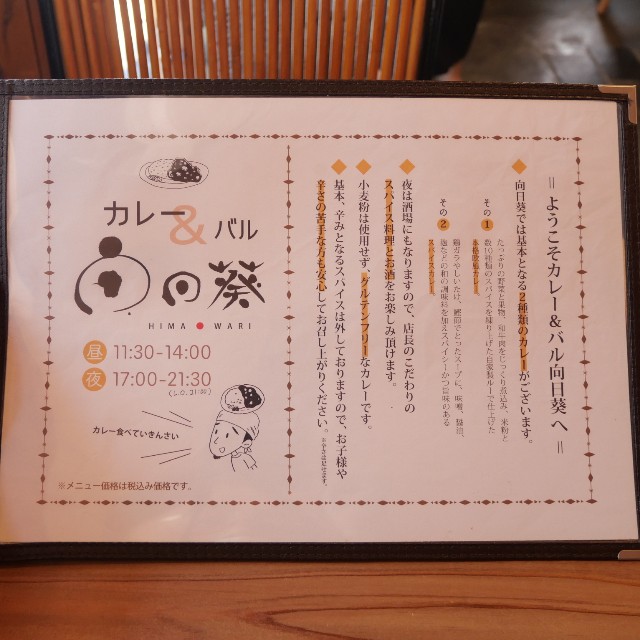 ＝ようこそカレー＆バル向日葵へ＝
◆向日葵では基本となる2種類のカレーがございます。
その①
たっぷりの野菜と果物、和牛肉をじっくり煮込み、米粉と
数10種類のスパイスを練り上げた自家製ルーで仕上げた
その②
鶏ガラやしいたけ、鰹節でとったスープに、味噌、醤油、
麹などの和の調味料を加えスパイシーかつ旨味のある
スパイスカレー
◆夜は酒場にもなりますので、店長のこだわりの
スパイス料理とお酒をお楽しみ頂けます。
◆小麦粉は使用せず、グルテンフリーなカレーです。
◆基本、辛みとなるスパイスは外しておりますので、お子様や
辛さの苦手な方も安心してお召し上がりください。
カレー＆バル
向日葵
HIMA●WARI
昼 11:30-14:00
夜 17:00-21:30
カレー食べていきんさい
※メニュー価格は税込み価格です。